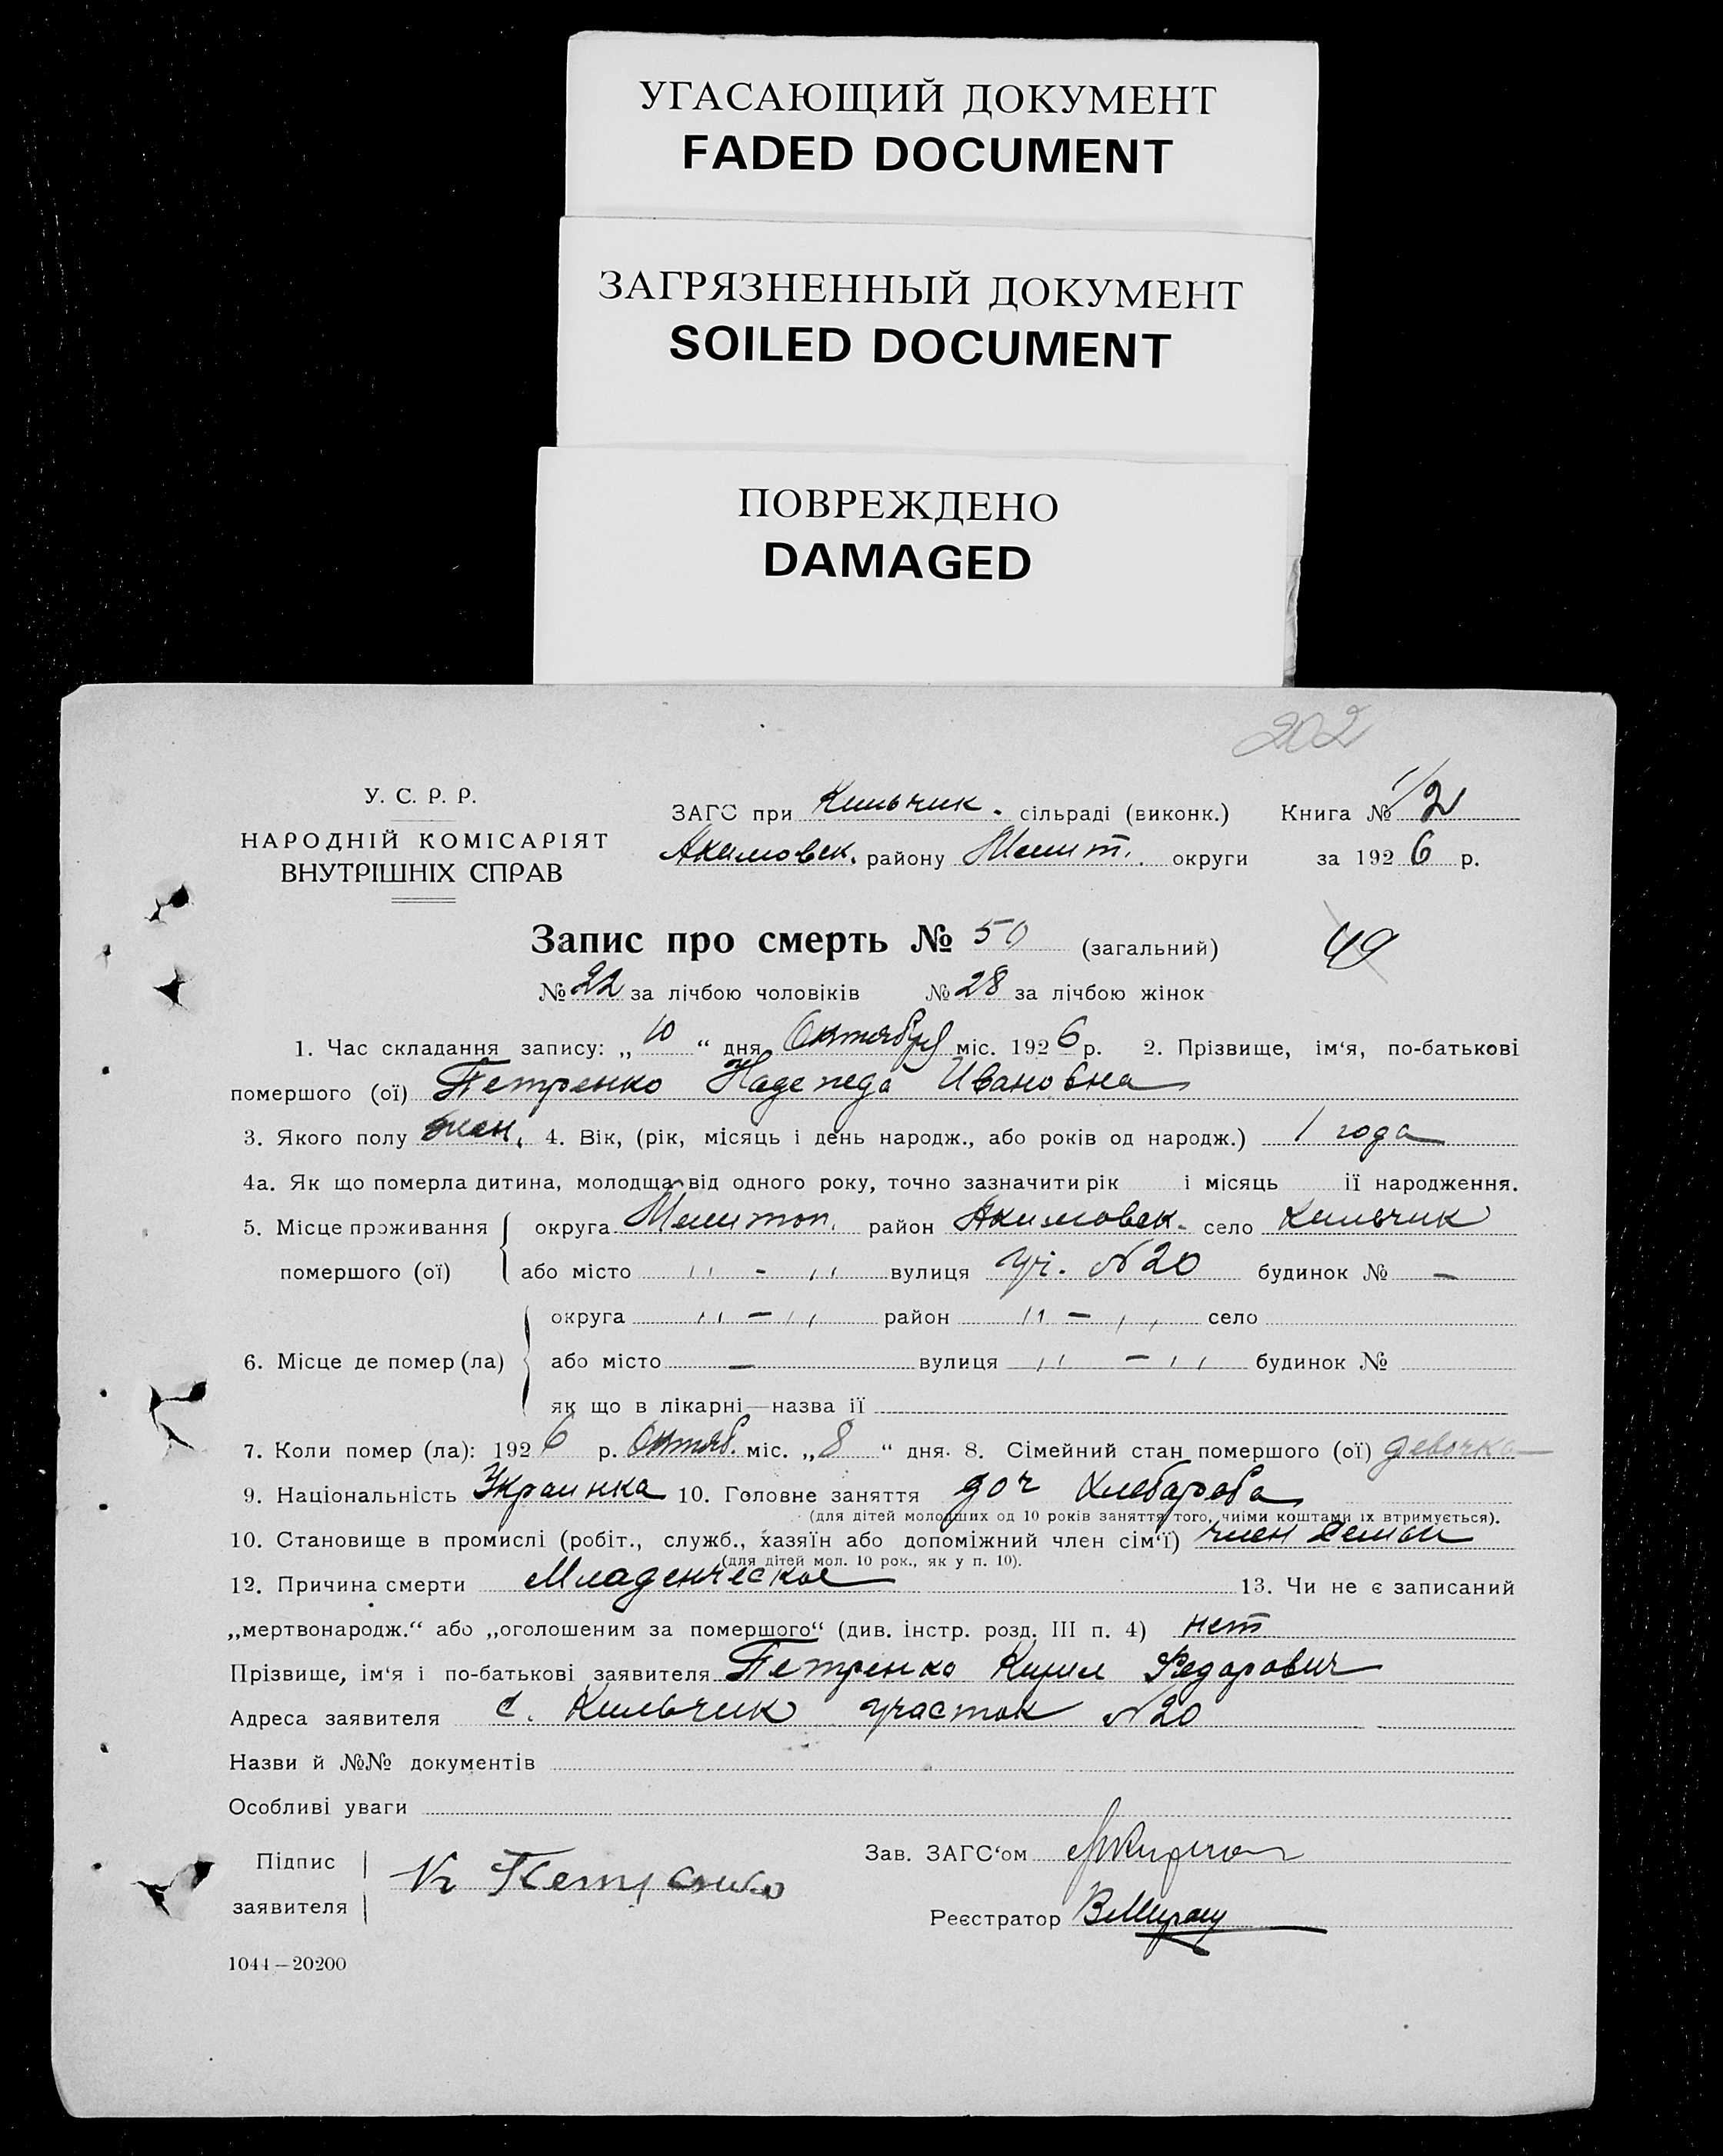 УГАСАЮЩИЙ ДОКУМЕНТ
FADED DOCUMENT
ЗАГРЯЗНЕННЫЙ ДОКУМЕНТ
SOILED DOCUMENT
ПОВРЕЖДЕНО
DAMAGED
202
У. С. Р. Р.
НАРОДНІЙ КОМІСАРІЯТ
ВНУТРІШНІХ СПРАВ
ЗАГС при Кильчик. сільраді (виконк.) Книга № 1/2
Акимовск. району Мелит. округи за 1926 р.
Запис про смерть № 50 (загальний) 49
№ 22 за лічбою чоловіків № 28 за лічбою жінок
1. Час складання запису: „10“ дня Октября міс. 1926 р. 2. Прізвище, ім‘я, по-батькові
помершого (ої) Петренко Надежда Ивановна
3. Якого полу жен. 4. Вік, (рік, місяць і день народж., або років од народж.) 1 года
4а. Як що померла дитина, молодща від одного року, точно зазначити рік і місяць її народження.
5. Місце проживання округа Мелитоп. район Акимовск. село Кильчик
помершого (ої) або місто " - " вулиця уч. №20 будинок № —
округа " — " район " — " село
6. Місце де помер (ла) або місто — вулиця " — " будинок №
як що в лікарні—назва її
7. Коли помер (ла): 1926 р. Октяб. міс. „8“ дня. 8. Сімейний стан помершого (ої) девочка
9. Національність Украинка 10. Головне заняття доч Хлебароба
(для дітей молодщих од 10 років заняття того, чиїми коштами їх втримується).
10. Становище в промислі (робіт., служб., хазяїн або допоміжний член сім‘ї) член семьи
(для дітей мол. 10 рок., як у п. 10).
12. Причина смерти Младенческое 13. Чи не є записаний
„мертвонародж.“ або „оголошеним за помершого“ (див. інстр. розд. III п. 4) нет
Прізвище, ім‘я і по-батькові заявителя Петренко Кирил Федорович
Адреса заявителя с. Кильчик участок №20
Назви й №№ документів
Особливі уваги
Підпис
заявителя К Петренко
Зав. ЗАГС‘ом
Реєстратор
1044—20200